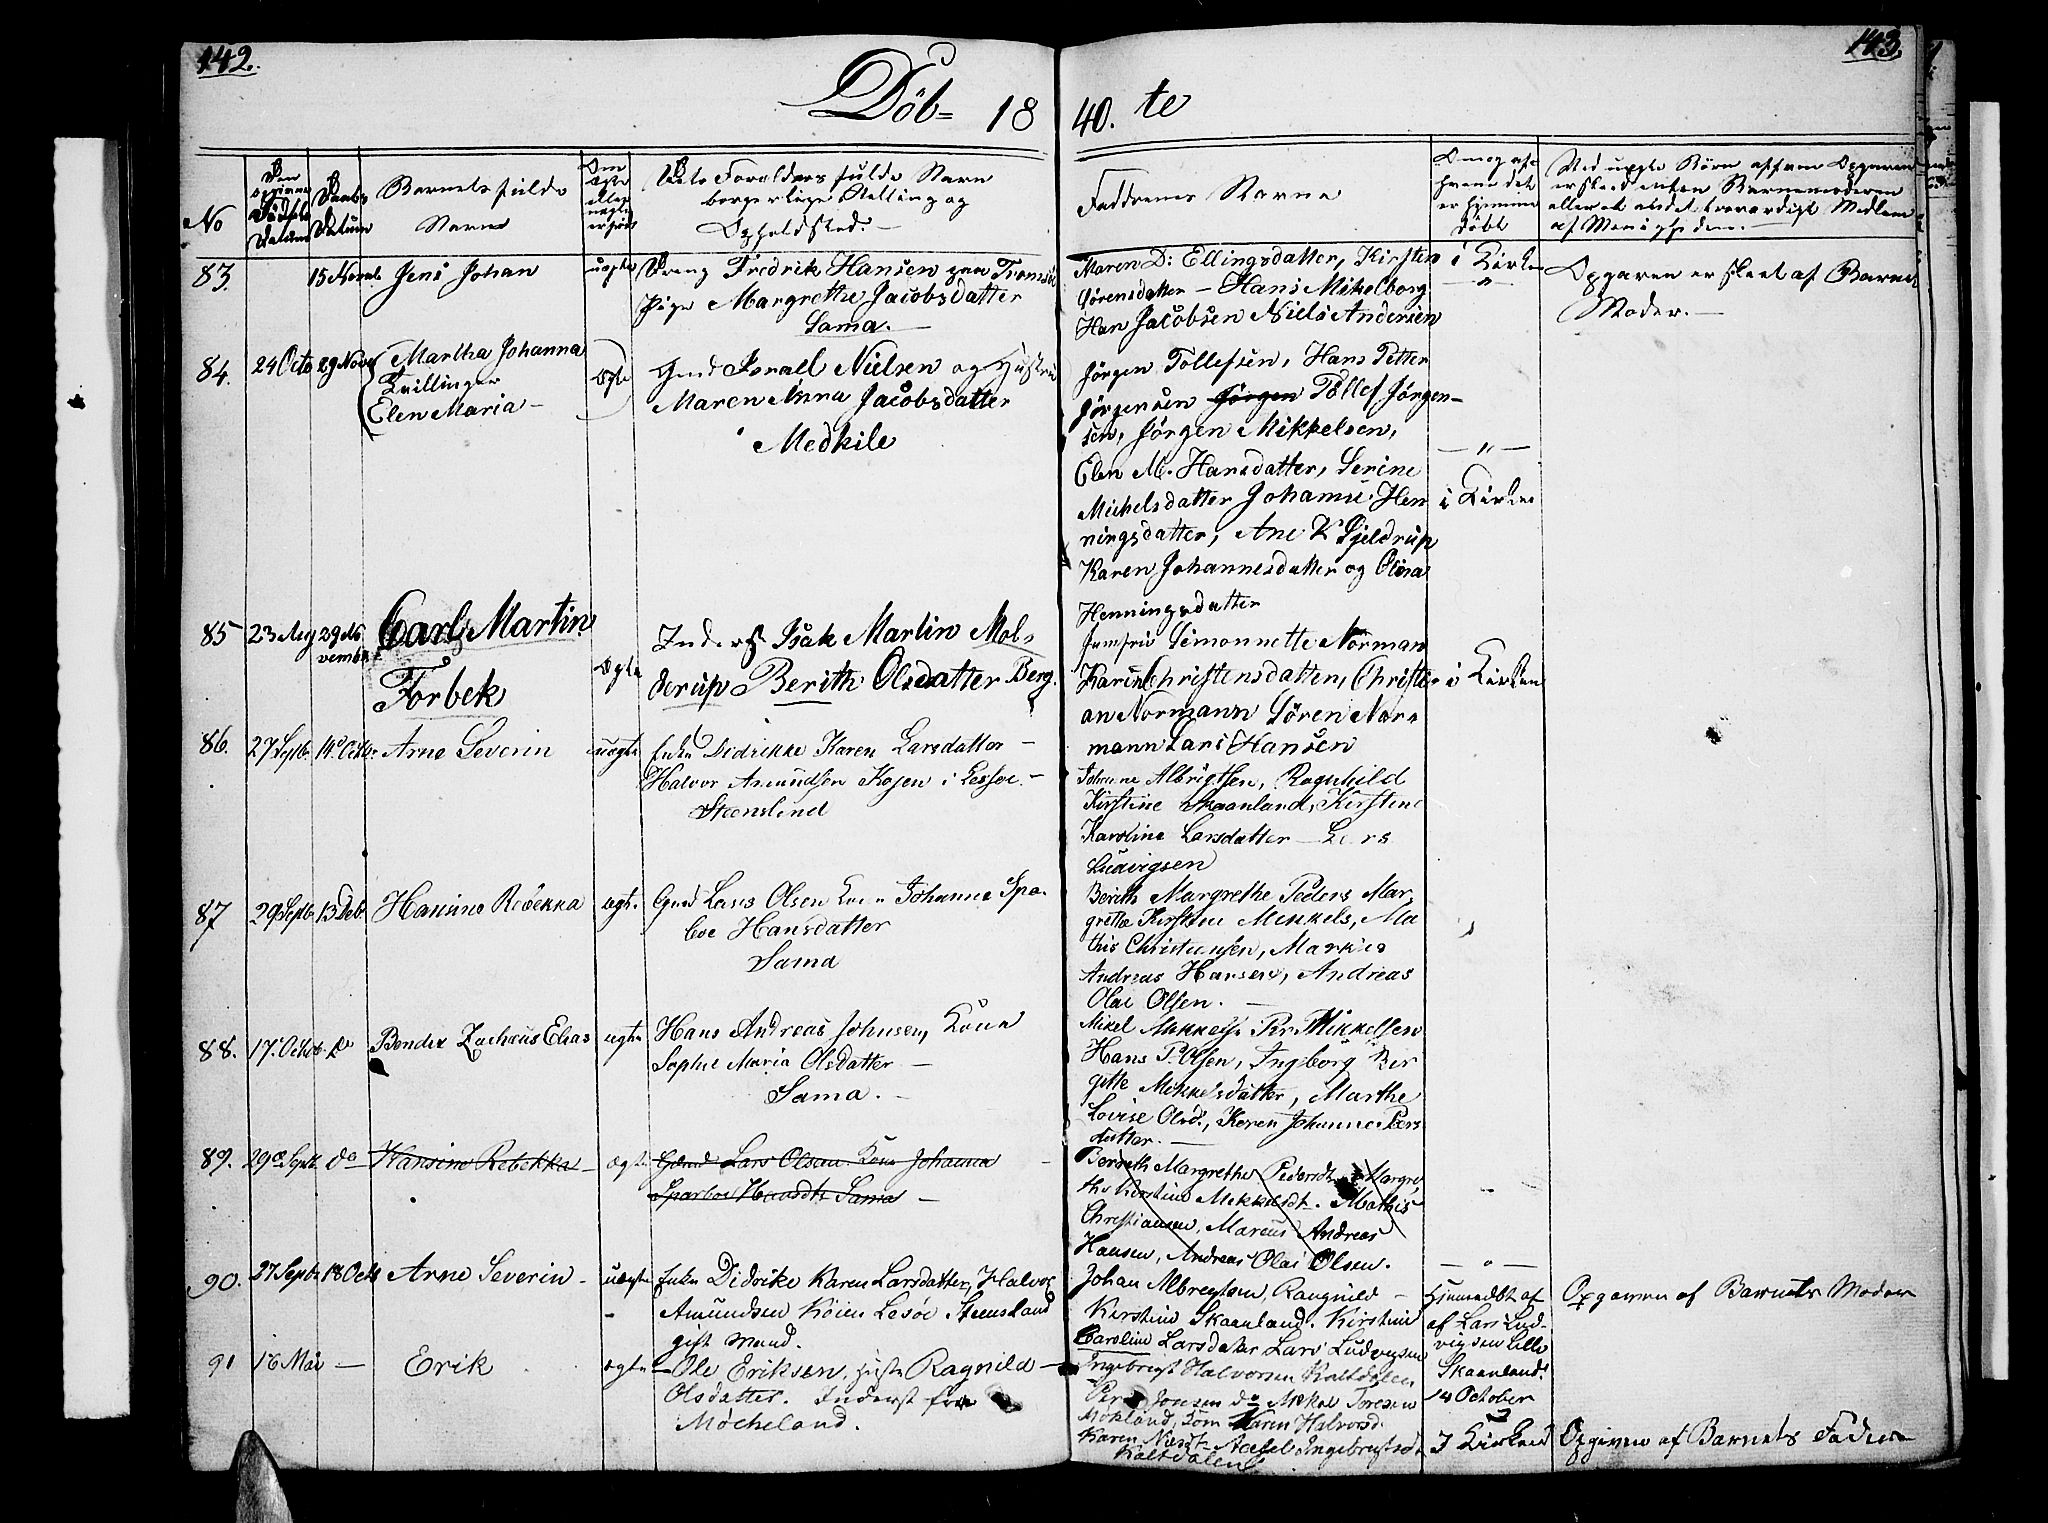 142.
143.
Döb= 18 40. te
No
Den opgivne Födsels Datum
Daabs Datum
Barnets fulde Navn
Om ægte eller uægte
Dets Forældres fulde Navn borgerlige Stilling og Opholdsted.
Faddrenes Navne
er hjemme døbt
Med uægte Børn Opgaven er skeed enten Barnemoderen eller et andet troværdigt Medlem af Menigheden.
83. 15 Novb Jens Johan uægte Dreng Fredrik Hansen paa Tromsöe
Pige Margrethe Jacobsdatter
Sama.
Maren D: Ellingsdatter, Kirsten
Sörensdatter — Hans Mikelborg
Han Jacobsen Niels Andersen
i Kirken
Opgaven er skeet af Barnets
Moder.
84. 24 Octo 29 Nov Martha Johanna
Tvillinger
Elen Maria
Ægte
Gmd Israel Nielsen og Hustru
Maren Anna Jacobsdatter
Medkile
Jörgen Tollefsen, Hans Petter
Jörgensen Jörgen Tollef Jörgen-
sen, Jörgen Mikkelsen,
Elen M. Hansdatter, Serine
Michelsdatter Johanne Hen
ningsdatter, Ane K Gjeldrup
Karen Johannesdatter og Olina
Henningsdatter
— " —
i Kirken
85 23 Aug 29 No
vember
Carl Martin
Forbek
Ægte
Inderst Isak Martin Mol-
derup Berith Olsdatter Berg.
Jumfru Simonnette Norman
Karin Christensdatter, Christi
an Normann Sören Nor-
mann Lars Hansen
i Kirken
86. 27 Septb. 14d Octbr. Arne Severin uægte Enke Didrikke Karen Larsdatter —
Halvor Amundsen Kojen i Lessoe. —
Steensland
Johanne Albrigtsen, Ragnhild
Kirstine Skaanland, Kirstine
Karoline Larsdatter — Lars
Ludvigsen
87 29 Septb 13 Deb. Hansine Rebekka ægte. Gmd Lars Olsen Kone Johanna Spa-
boe Hansdatter
Sama
Berith Margrethe Peders Mar-
grethe Kirstine Mikkels, Ma
this Christiansen, Markus
Andreas Hansen, Andreas
Olai Olsen.
88. 17. Octob. do Bendix Zacheus Elias ægte Hans Andreas Johnsen, Kone
Sophie Maria Olsdatter —
Sama.
Mikel Mikkelsen Per Mikkelsen
Hans P. Olsen, Ingeborg Bir
gitte Mikkelsdatter, Marthe
Lovise Olsd., Karen Johanne Pers
datter.
89. 29de Septb. do Hansine Rebekka ægte Gmd Lars Olsen Kone Johanna
Sparboe Hansdtr Sama
Bereth Margrethe Pedersdt. Margre,
the Kirstine Mikkelsdt. Mathis
Christiansen, Marcus Andreas
Hansen, Andreas Olai Olsen.
90. 27 Septb 18 Octb Arne Severin uægte Enke Didrike Karen Larsdatter, Halvor
Amundsen Köien Lesöe Steensland
gift Mand.
Johan Albregtsen, Rangnild —
Kirstine Skaanland. Kirstine
Caroline Larsdatter Lars Ludvigsen
Hjemmedöbt af
af Lars Lud-
vigsen Lille
Skaanland
14 October
Opgaven af Barnets Moder
91 16 Mai — Erik ægte — Ole Eriksen, Hustr Ragnild —
Olsdatter. Inderst fra
Möcheland.
Ingebregt Halvorsen Kaltdalen
Per Jonsen do Mikal Toresen
Mökland, Karen Halvorsd.
Karen Ingebregtsdt
Kaltdalen
I Kirken
Opgiven af Barnets Fader